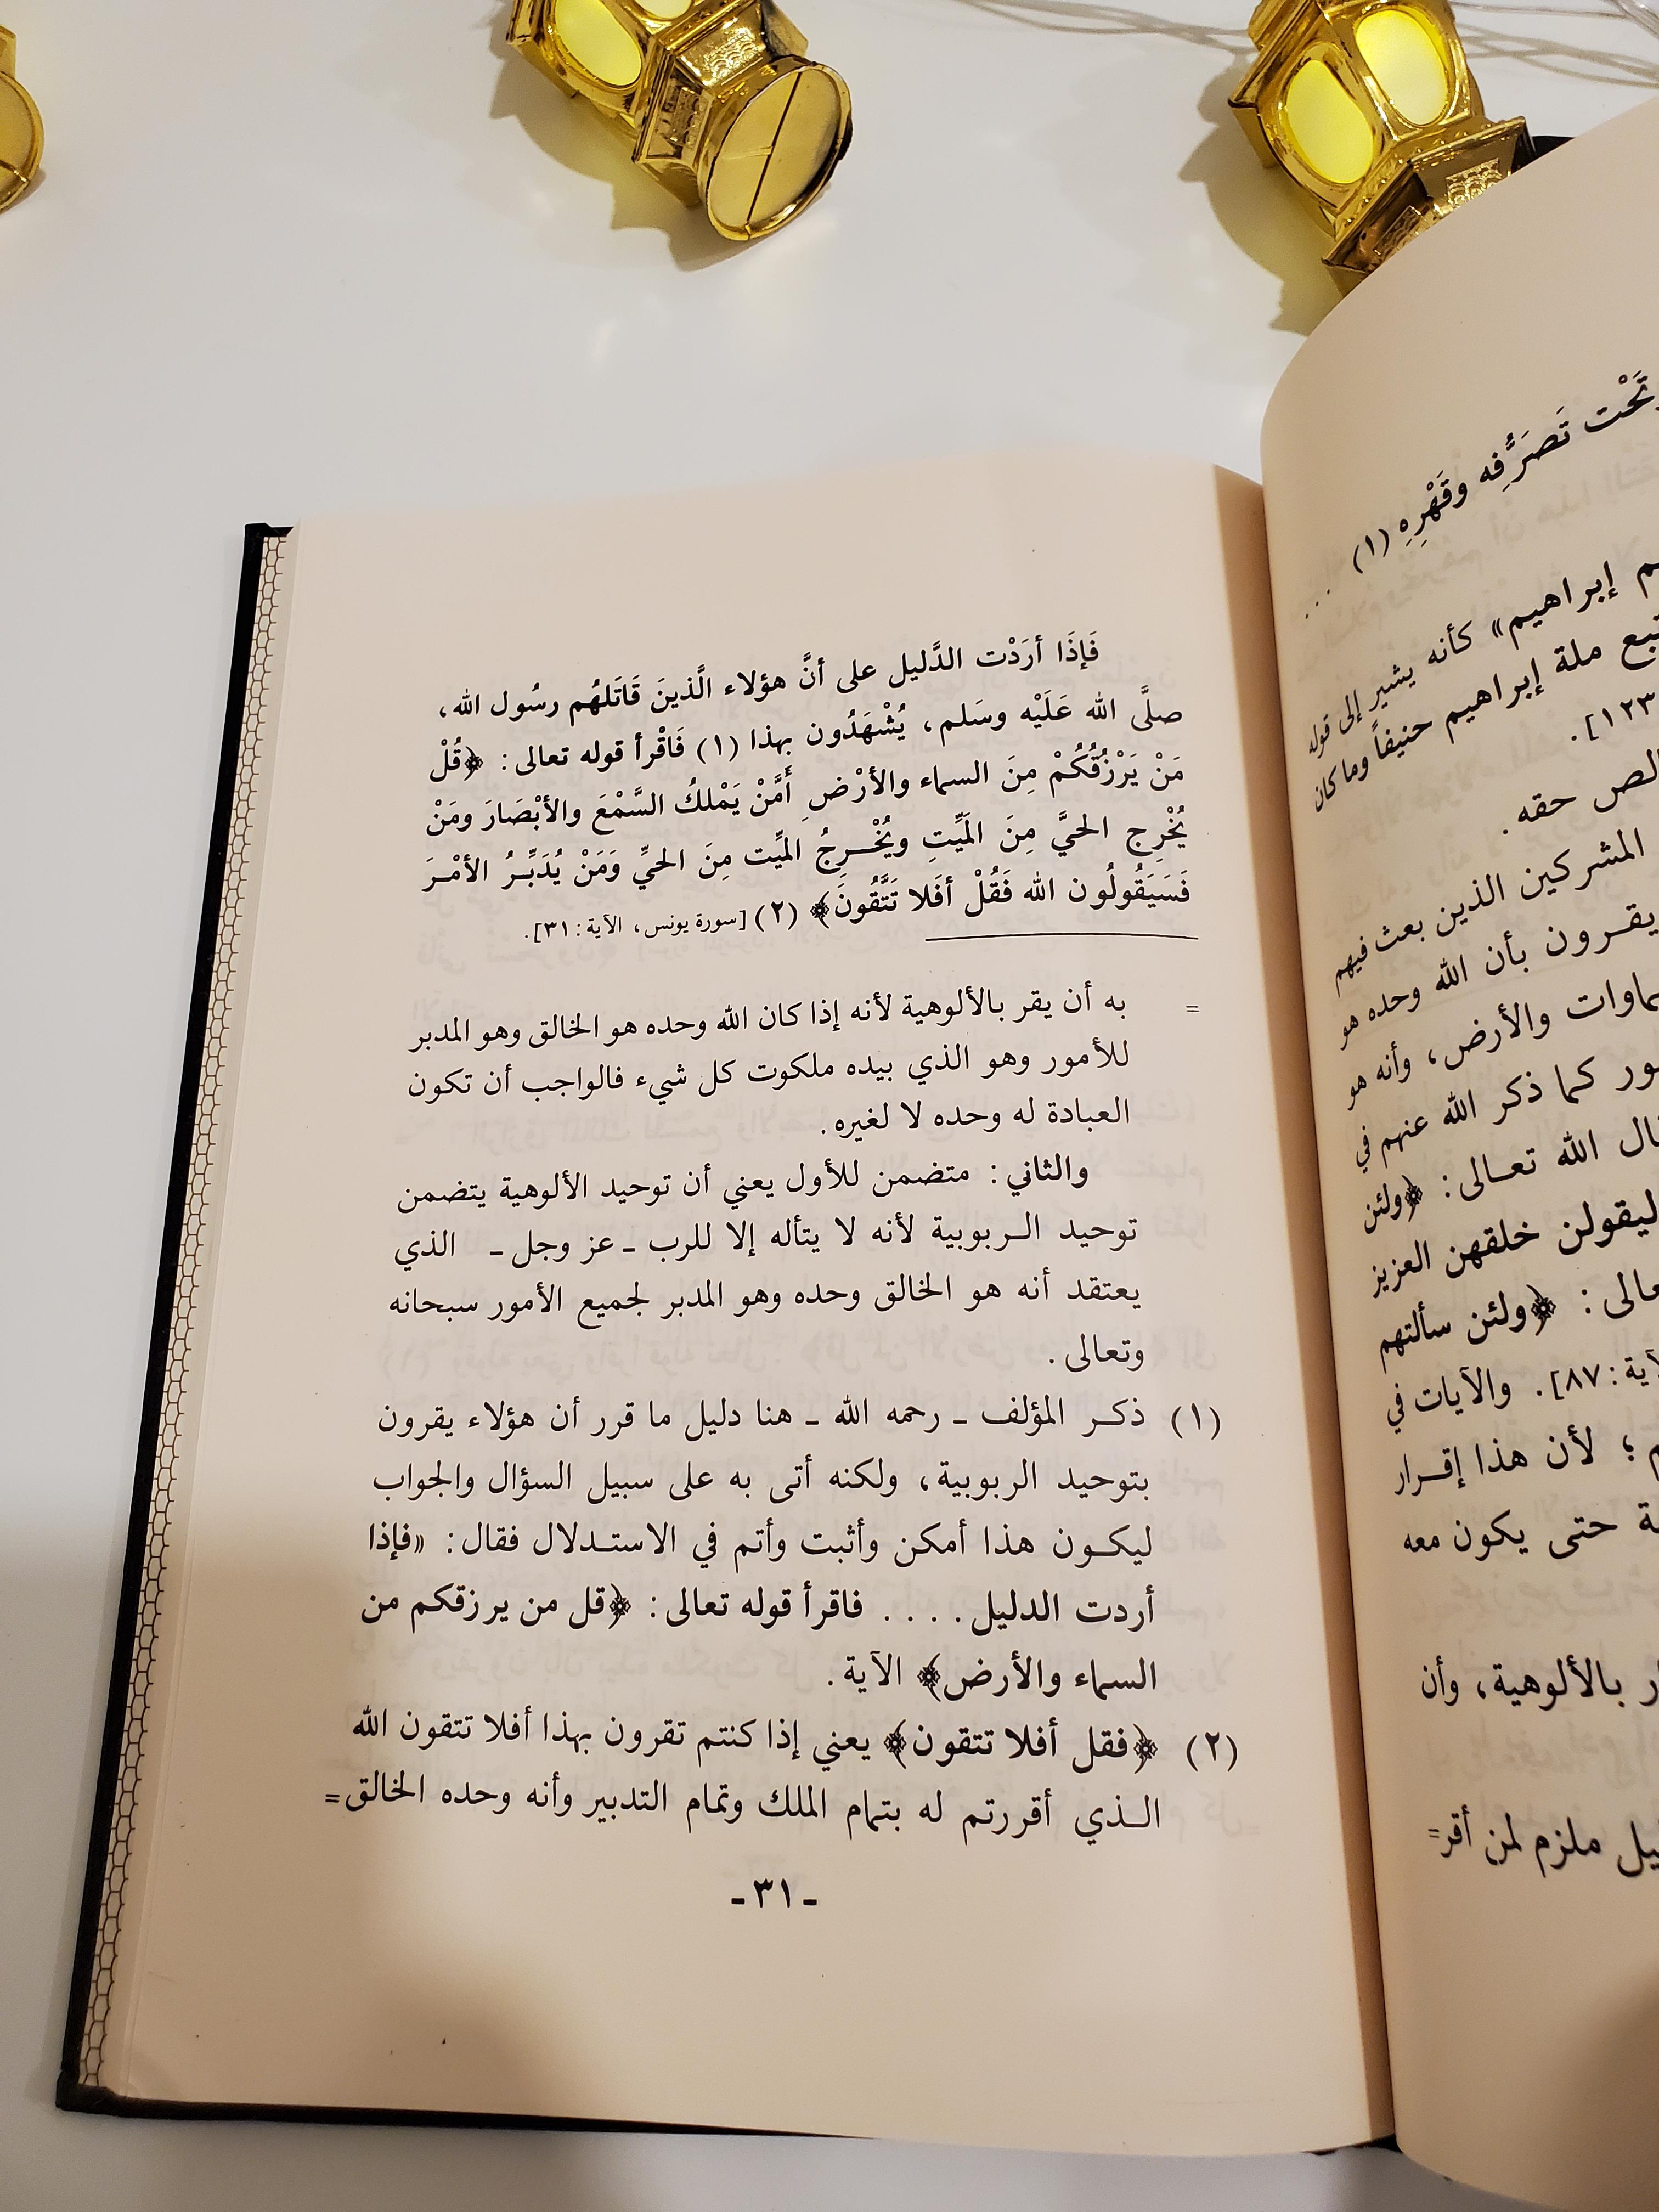 تَحْت تَصَرُّفِه وقَهْرِهِ (١) ...
إبراهيم» كأنه يشير إلى قوله
ملة إبراهيم حنيفاً وما كان
١٢٣].
حقه.
المشركين الذين بعث فيهم
يقرون بأن الله وحده هو
والأرض، وأنه هو
كما ذكر الله عنهم في
الله تعالى: ﴿ولئن
ليقولن خلقهن العزيز
﴿ولئن سألتهم
٨٧]. والآيات في
؛ لأن هذا إقرار
حتى يكون معه
بالألوهية، وأن
ملزم لمن أقر=
فَإذَا أرَدْت الدَّليل على أنَّ هؤلاء الَّذينَ قَاتَلهُم رسُول الله،
صلَّى الله عَلَيْه وسَلم، يُشْهَدُون بهذا (١) فَاقْرأ قوله تعالى: ﴿قُلْ
مَنْ يَرْزُقُكُمْ مِنَ السماء والأرْضِ أَمَّنْ يَمْلكُ السَّمْعَ والأبْصَارَ ومَنْ
يُخْرِج الحيَّ مِنَ المَيِّتِ ويُخْرِجُ الميِّت مِنَ الحيِّ وَمَنْ يُدَبِّرُ الأمْرَ
فَسَيَقُولُون الله فَقُلْ أفَلا تَتَّقُونَ﴾ (٢) [سورة يونس، الآية: ٣١].
= به أن يقر بالألوهية لأنه إذا كان الله وحده هو الخالق وهو المدبر
للأمور وهو الذي بيده ملكوت كل شيء فالواجب أن تكون
العبادة له وحده لا لغيره.
والثاني: متضمن للأول يعني أن توحيد الألوهية يتضمن
توحيد الربوبية لأنه لا يتأله إلا للرب ـ عز وجل ـ الذي
يعتقد أنه هو الخالق وحده وهو المدبر لجميع الأمور سبحانه
وتعالى.
(١) ذكر المؤلف ـ رحمه الله ـ هنا دليل ما قرر أن هؤلاء يقرون
بتوحيد الربوبية، ولكنه أتى به على سبيل السؤال والجواب
ليكون هذا أمكن وأثبت وأتم في الاستدلال فقال: «فإذا
أردت الدليل.... فاقرأ قوله تعالى: ﴿قل من يرزقكم من
السماء والأرض﴾ الآية.
(٢) ﴿فقل أفلا تتقون﴾ يعني إذا كنتم تقرون بهذا أفلا تتقون الله
الذي أقررتم له بتمام الملك وتمام التدبير وأنه وحده الخالق=
ـ ٣١ ـ